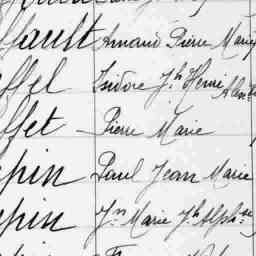 ffault Armand Pierre Marie
ffel Isidore Jh Henri Alex
ffet Pierre Marie
pin Paul Jean Marie
pin Jn Marie Jh Alphse